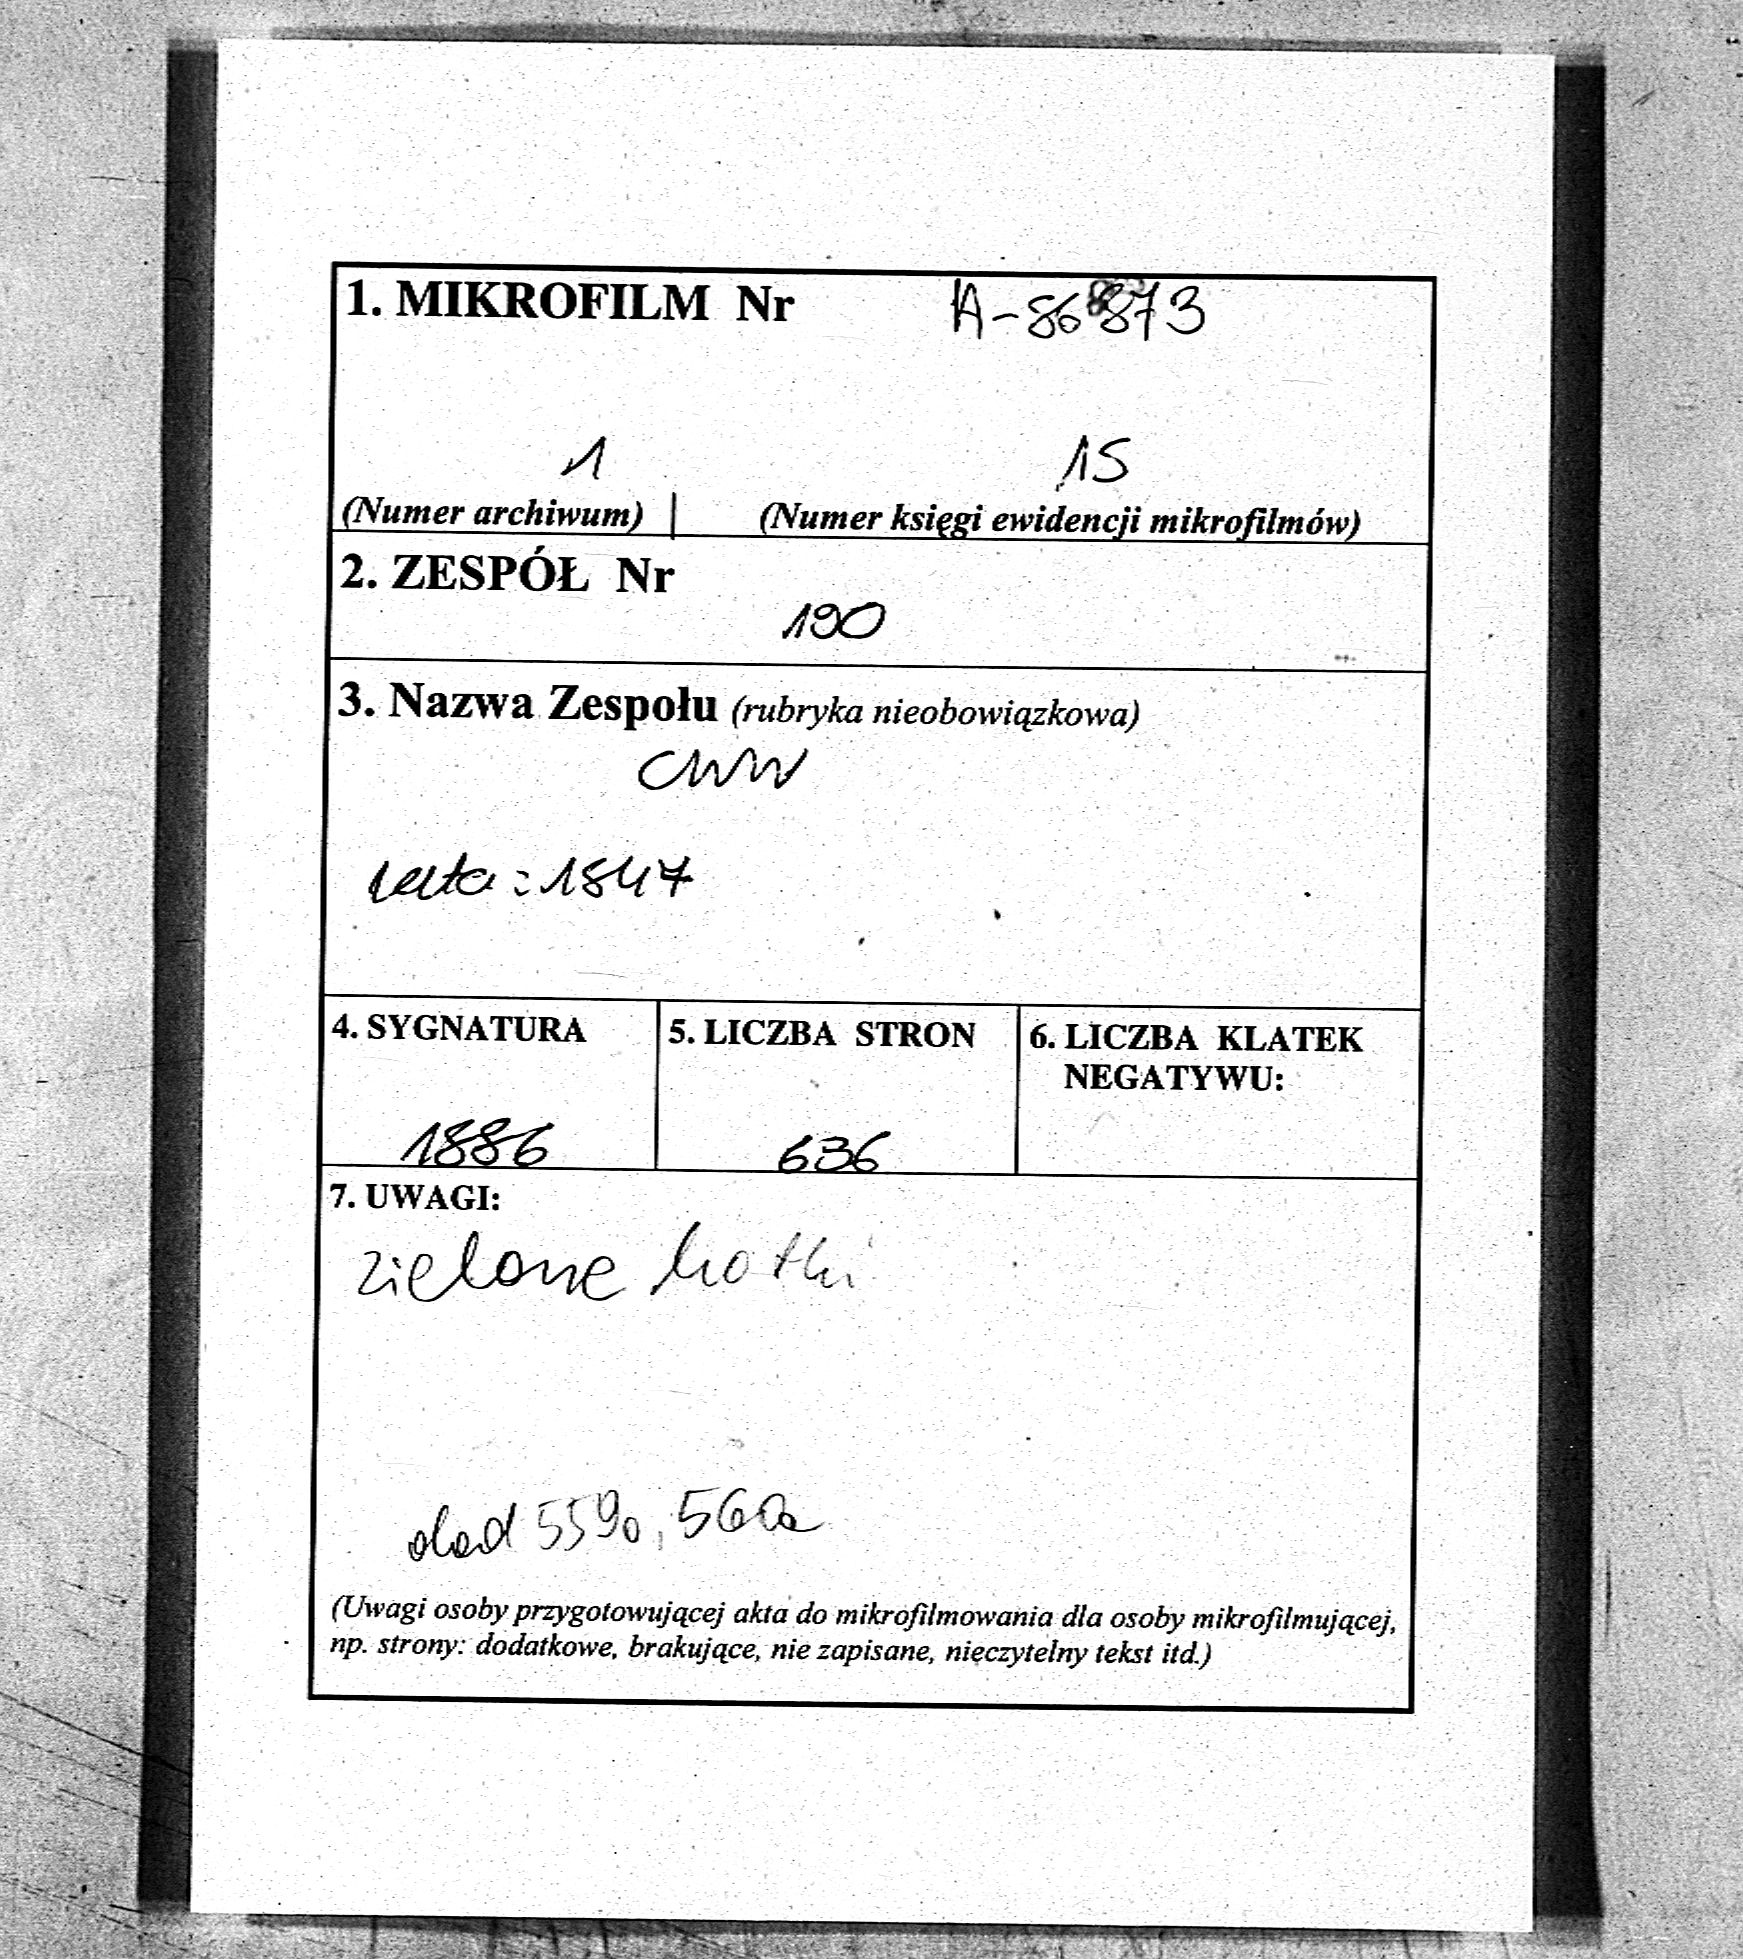 1. MIKROFILM Nr A-86873
1 15
(Numer archiwum) | (Numer księgi ewidencji mikrofilmów)
2. ZESPÓŁ Nr
190
3. Nazwa Zespołu (rubryka nieobowiązkowa)
CWW
lata: 1847
4. SYGNATURA
1886
5. LICZBA STRON
636
6. LICZBA KLATEK
NEGATYWU:
7. UWAGI:
zielone
dod 559a, 560a
(Uwagi osoby przygotowującej akta do mikrofilmowania dla osoby mikrofilmującej,
np. strony: dodatkowe, brakujące, nie zapisane, nieczytelny tekst itd.)